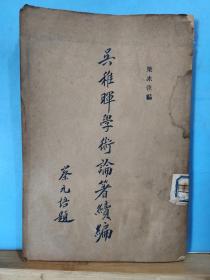 梁冰弦編
吳稚暉學術論著續編
蔡元培題